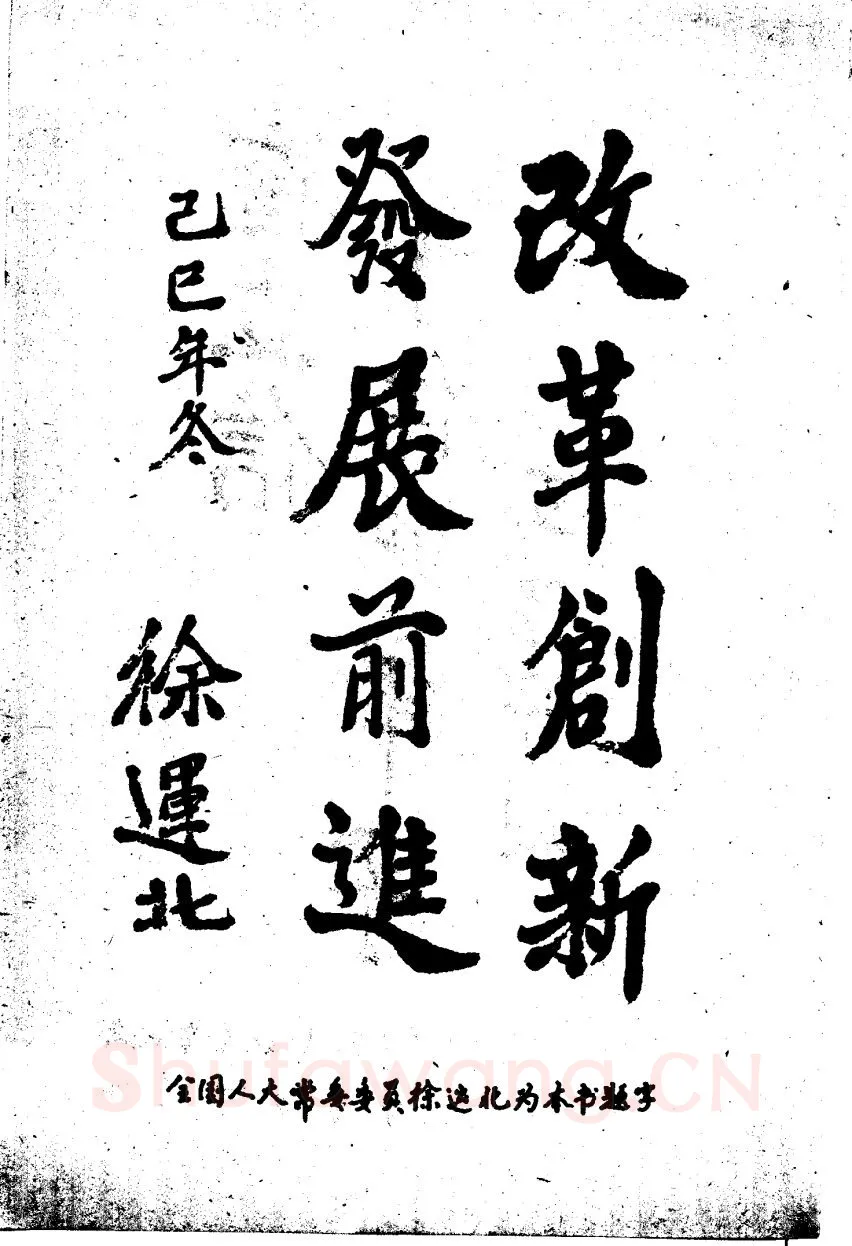 改革創新
發展前進
己巳年冬
徐運北
全国人大常委委員徐运北为本书题字
ShufaWang.CN